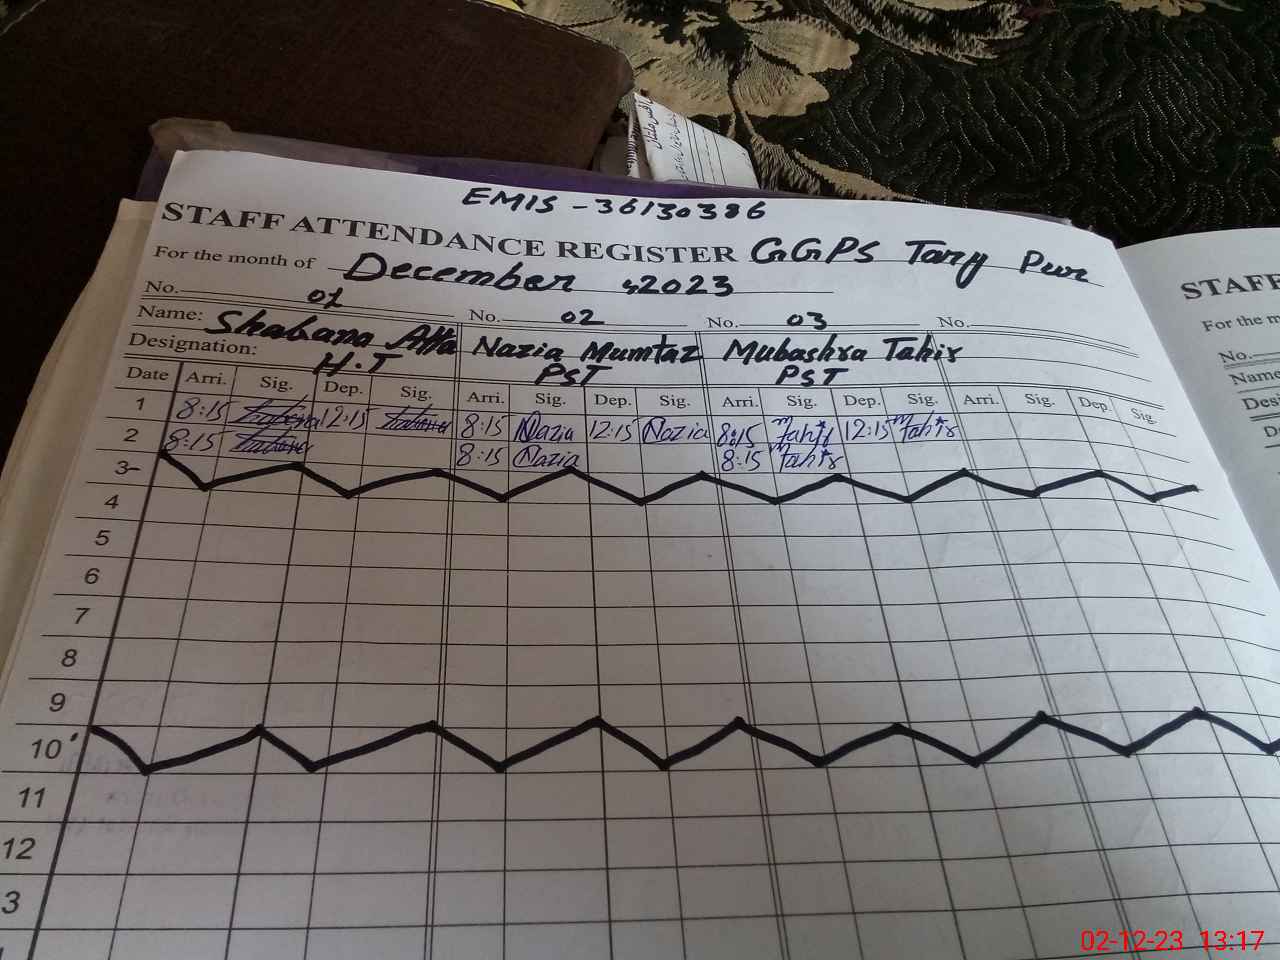 EMIS - 36130386
STAFF ATTENDANCE REGISTER GGPS Tary Pur
For the month of December ,2023
No. 01 No. 02 No. 03 No.
Name: Shabana Atta Nazia Mumtaz Mubashra Tahir
Designation: H.T PST PST
Date Arri. Sig. Dep. Sig. Arri. Sig. Dep. Sig. Arri. Sig. Dep. Sig. Arri. Sig. Dep. Sig.
1 8:15 Shabana 12:15 Shabana 8:15 Nazia 12:15 Nazia 8:15 M Tahir 12:15 M Tahir
2 8:15 Shabana 8:15 Nazia 8:15 M Tahir
3-
4
5
6
7
8
9
10
11
12
3
STAFF
For the m
No.
Name
Desi
D
02-12-23 13:17